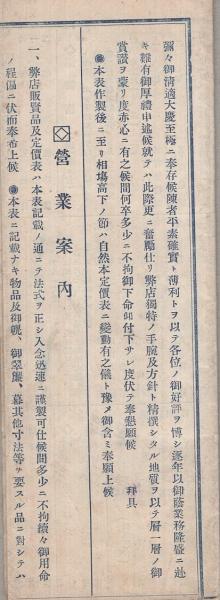 彌々御清適大慶至極ニ奉存候陳者平素確實ト薄利トヲ以テ各位ノ御好評ヲ博シ逐年以御蔭業務隆盛ニ赴
キ難有御厚禮申述候就テハ此際更ニ奮勵仕リ弊店獨特ノ手腕及方針ト精撰シタル地質ヲ以テ層一層ノ御
賞讃ヲ蒙リ度赤心ニ有之候間何卒多少ニ不拘御下命御付下サレ度伏テ奉懇願候　拜具
◉本表作製後ニ至リ相塲高下ノ節ハ自然本定價表ニ變動有之儀ト豫メ御含ミ奉願上候
◇營業案內
一、弊店販賣品及定價表ハ本表記載ノ通ニテ法式ヲ正シ入念迅速ニ謹製可仕候間多少ニ不拘續々御用命
ノ程偏ニ伏而奉希上候　◉本表ニ記載ナキ物品及御幌、御翠簾、幕其他寸法等ヲ要スル品ニ對シテハ